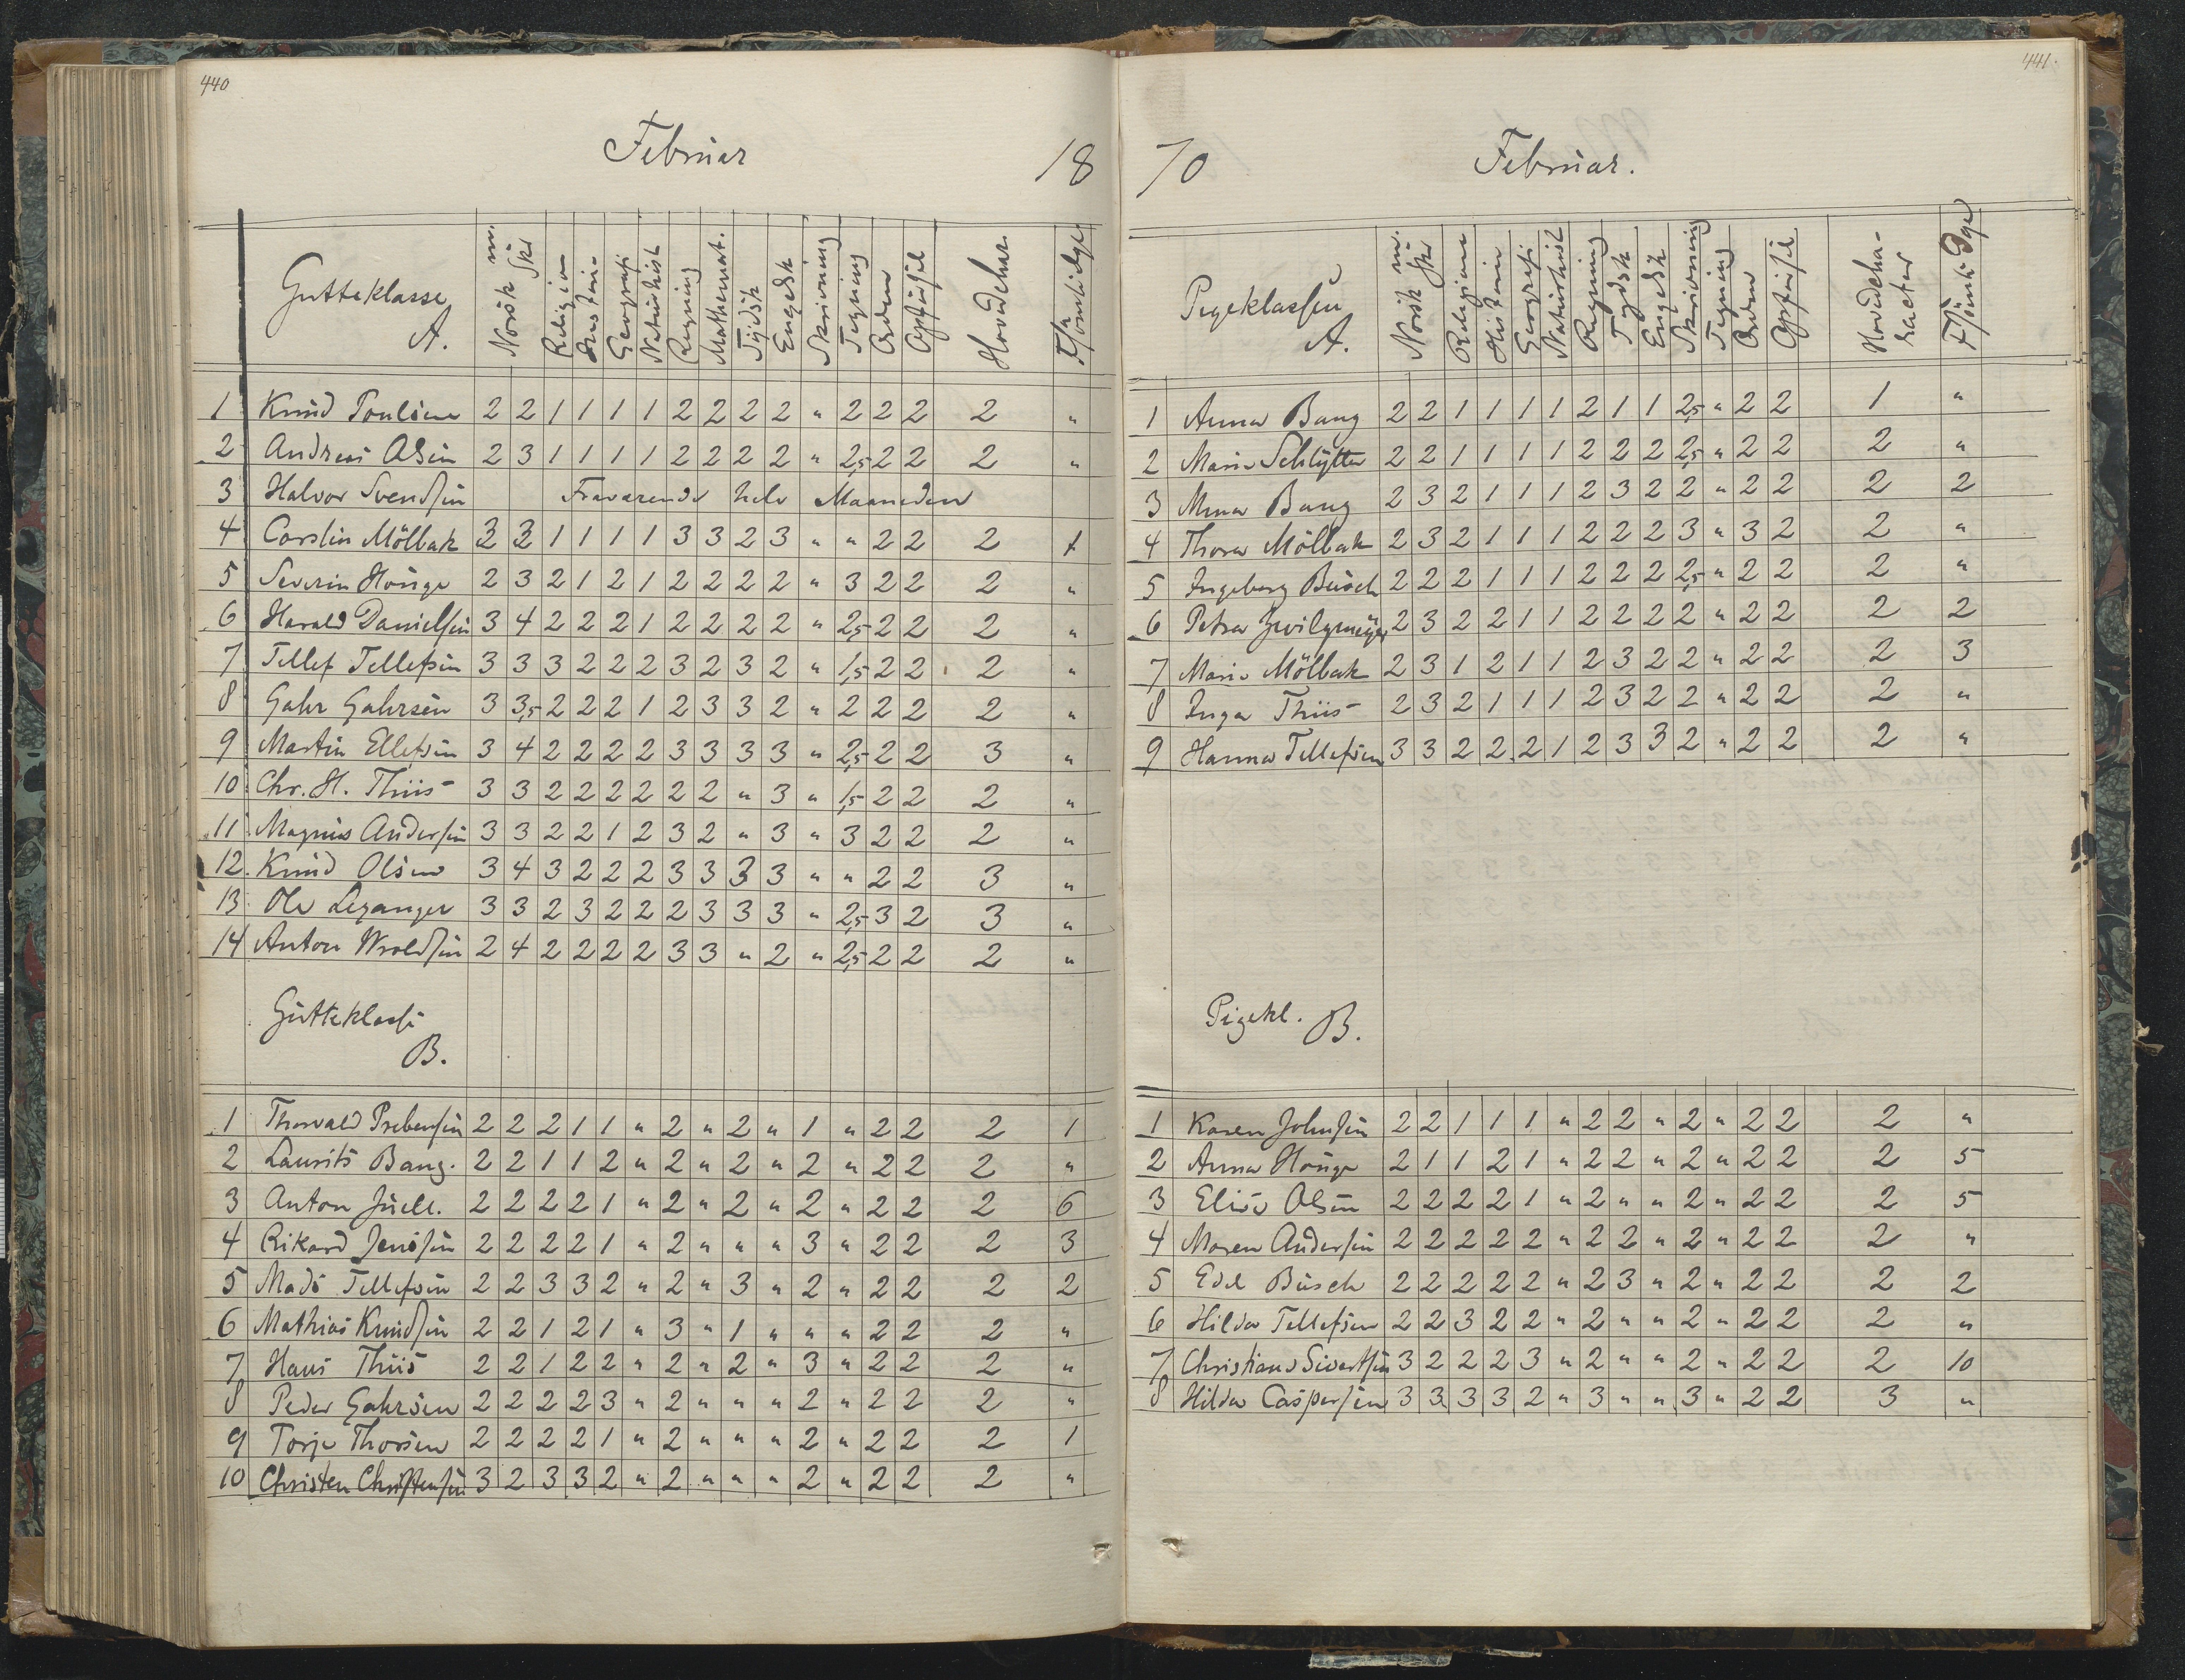 440
Februar 18
Gutteklasse A. Norsk m. Skr Religion Historie Geografi Naturhist Regning Mathemat. Tydsk Engelsk Skrivning Tegning Orden Opførsel Hovedchar. Forsømte Dge
1 Knud Poulsen 2 2 1 1 1 1 2 2 2 2 " 2 2 2 2 "
2 Andreas Olsen 2 3 1 1 1 1 2 2 2 2 " 2,5 2 2 2 "
3 Halvor Svendsen Fraværende hele Maaneden
4 Carslin Mölbak 3 3 1 1 1 1 3 3 2 3 " " 2 2 2
5 Severin Houge 2 3 2 1 2 1 2 2 2 2 " 3 2 2 2 "
6 Harald Danielsen 3 4 2 2 2 1 2 2 2 2 " 2,5 2 2 2 "
7 Tellef Tellefsen 3 3 3 2 2 2 3 2 3 2 " 1,5 2 2 2 "
8 Gahr Gahrsen 3 3,5 2 2 2 1 2 3 3 2 " 2 2 2 2 "
9 Martin Ellefsen 3 4 2 2 2 2 3 3 3 3 " 2,5 2 2 3 "
10 Chr. H. Thiis 3 3 2 2 2 2 2 2 " 3 " 1,5 2 2 2 "
11 Magnus Andersen 3 3 2 2 1 2 3 2 " 3 " 3 2 2 2 "
12. Knud Olsen 3 4 3 2 2 2 3 3 3 3 " " 2 2 3 "
13. Ole Leganger 3 3 2 3 2 2 2 3 3 3 " 2,5 3 2 3 "
14 Anton Wroldsen 2 4 2 2 2 2 3 3 " 2 " 2,5 2 2 2 "
Gutteklasse B.
1 Thorvald Prebensen 2 2 2 1 1 " 2 " 2 " 1 " 2 2 2 1
2 Laurits Bang. 2 2 1 1 2 " 2 " 2 " 2 " 2 2 2 "
3 Anton Juell. 2 2 2 2 1 " 2 " 2 " 2 " 2 2 2 6
4 Rikard Jensen 2 2 2 2 1 " 2 " " " 3 " 2 2 2 3
5 Mads Tellefsen 2 2 3 3 2 " 2 " 3 " 2 " 2 2 2 2
6 Mathias Knudsen 2 2 1 2 1 " 3 " 1 " " " 2 2 2 "
7 Hans Thiis 2 2 1 2 2 " 2 " 2 " 3 " 2 2 2 "
8 Peder Gahrsen 2 2 2 2 3 " 2 " " " 2 " 2 2 2 "
9 Torje Thorsen 2 2 2 2 1 " 2 " " " 2 " 2 2 2 1
10 Christen Christensen 3 2 3 3 2 " 2 " " " 2 " 2 2 2 "
441.
70 Februar.
Pigeklassen A. Norsk m. Skr Religion Historie Geografi Naturhist Regning Tydsk Engelsk Skrivning Tegning Orden Opførsel Hovedcharacter Forsømte Dage
1 Anna Bang 2 2 1 1 1 1 2 1 1 2,5 " 2 2 1 "
2 Marie Schlytter 2 2 1 1 1 1 2 2 2 2,5 " 2 2 2 "
3 Mina Bang 2 3 2 1 1 1 2 3 2 2 " 2 2 2 2
4 Thora Mölbak 2 3 2 1 1 1 2 2 2 3 " 3 2 2 "
5 Ingeborg Busch 2 2 2 1 1 1 2 2 2 2,5 " 2 2 2 "
6 Petra Zwilgmeyer 2 3 2 2 1 1 2 2 2 2 " 2 2 2 2
7 Marie Mölbak 2 3 1 2 1 1 2 3 2 2 " 2 2 2 3
8 Inga Thiis 2 3 2 1 1 1 2 3 2 2 " 2 2 2 "
9 Hanna Tellefsen 3 3 2 2 2 1 2 3 3 2 " 2 2 2 "
Pigekl. B.
1 Karen Johnsen 2 2 1 1 1 " 2 2 " 2 " 2 2 2 "
2 Anna Houge 2 1 1 2 1 " 2 2 " 2 " 2 2 2 5
3 Elise Olsen 2 2 2 2 1 " 2 " " 2 " 2 2 2 5
4 Maren Andersen 2 2 2 2 2 " 2 2 " 2 " 2 2 2 "
5 Edel Busch 2 2 2 2 2 " 2 3 " 2 " 2 2 2 2
6 Hilda Tellefsen 2 2 3 2 2 " 2 " " 2 " 2 2 2 "
7 Christiane Sivertsen 3 2 2 2 3 " 2 " " 2 " 2 2 2 10
8 Hilda Caspersen 3 3 3 3 2 " 3 " " 3 " 2 2 3 "